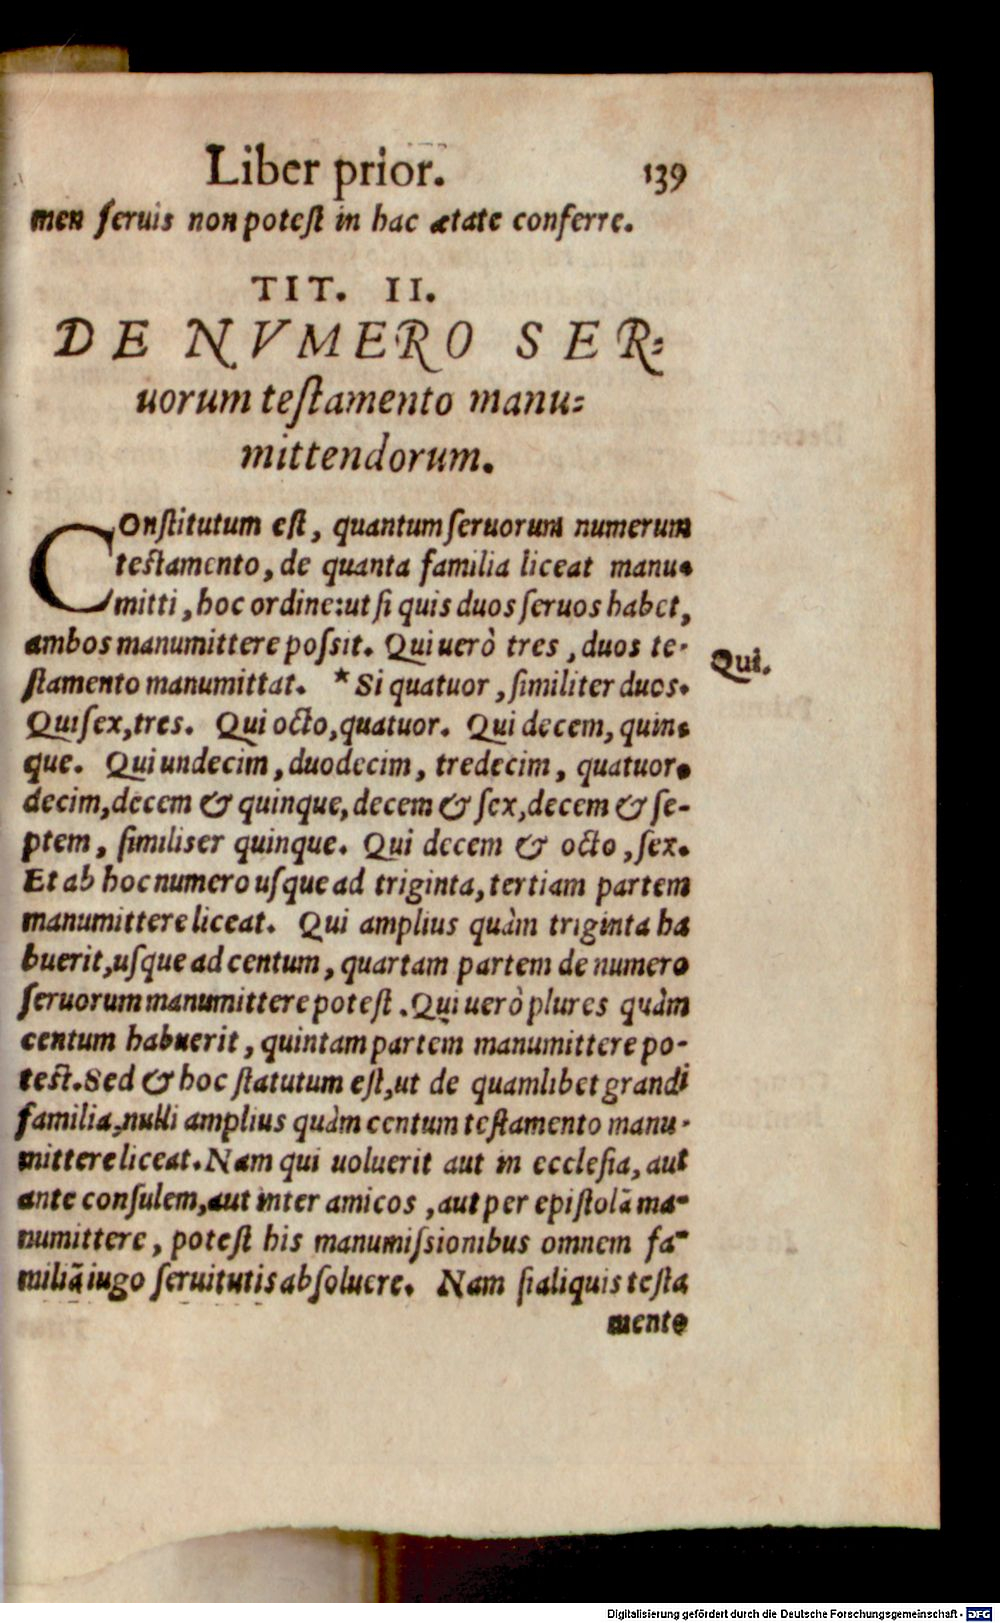 Liber prior. 139
men ſeruis non poteſt in hac ætate conferre.
TIT. II.
DE NVMERO SER⸗
uorum teſtamento manu⸗
mittendorum.
COnſtitutum eſt, quantum ſeruorum numerum
teſtamento, de quanta familia liceat manu-
mitti, hoc ordine: ut ſi quis duos ſeruos habet,
ambos manumittere poſsit. Qui uerò tres, duos te-
ſtamento manumittat. * Si quatuor, ſimiliter duos.
Qui.
Qui ſex, tres. Qui octo, quatuor. Qui decem, quin-
que. Qui undecim, duodecim, tredecim, quatuor-
decim, decem & quinque, decem & ſex, decem & ſe-
ptem, ſimiliser quinque. Qui decem & octo, ſex.
Et ab hoc numero uſque ad triginta, tertiam partem
manumittere liceat. Qui amplius quàm triginta ha
buerit, uſque ad centum, quartam partem de numero
ſeruorum manumittere poteſt. Qui uerò plures quàm
centum habuerit, quintam partem manumittere po-
teſt. Sed & hoc ſtatutum eſt, ut de quamlibet grandi
familia, nulli amplius quàm centum teſtamento manu-
mittere liceat. Nam qui uoluerit aut in eccleſia, aut
ante conſulem, aut inter amicos, aut per epiſtolā ma-
numittere, poteſt his manumiſsionibus omnem fa-
miliā iugo ſeruitutis abſoluere. Nam ſi aliquis teſta
mento
Digitalisierung gefördert durch die Deutsche Forschungsgemeinschaft - DFG